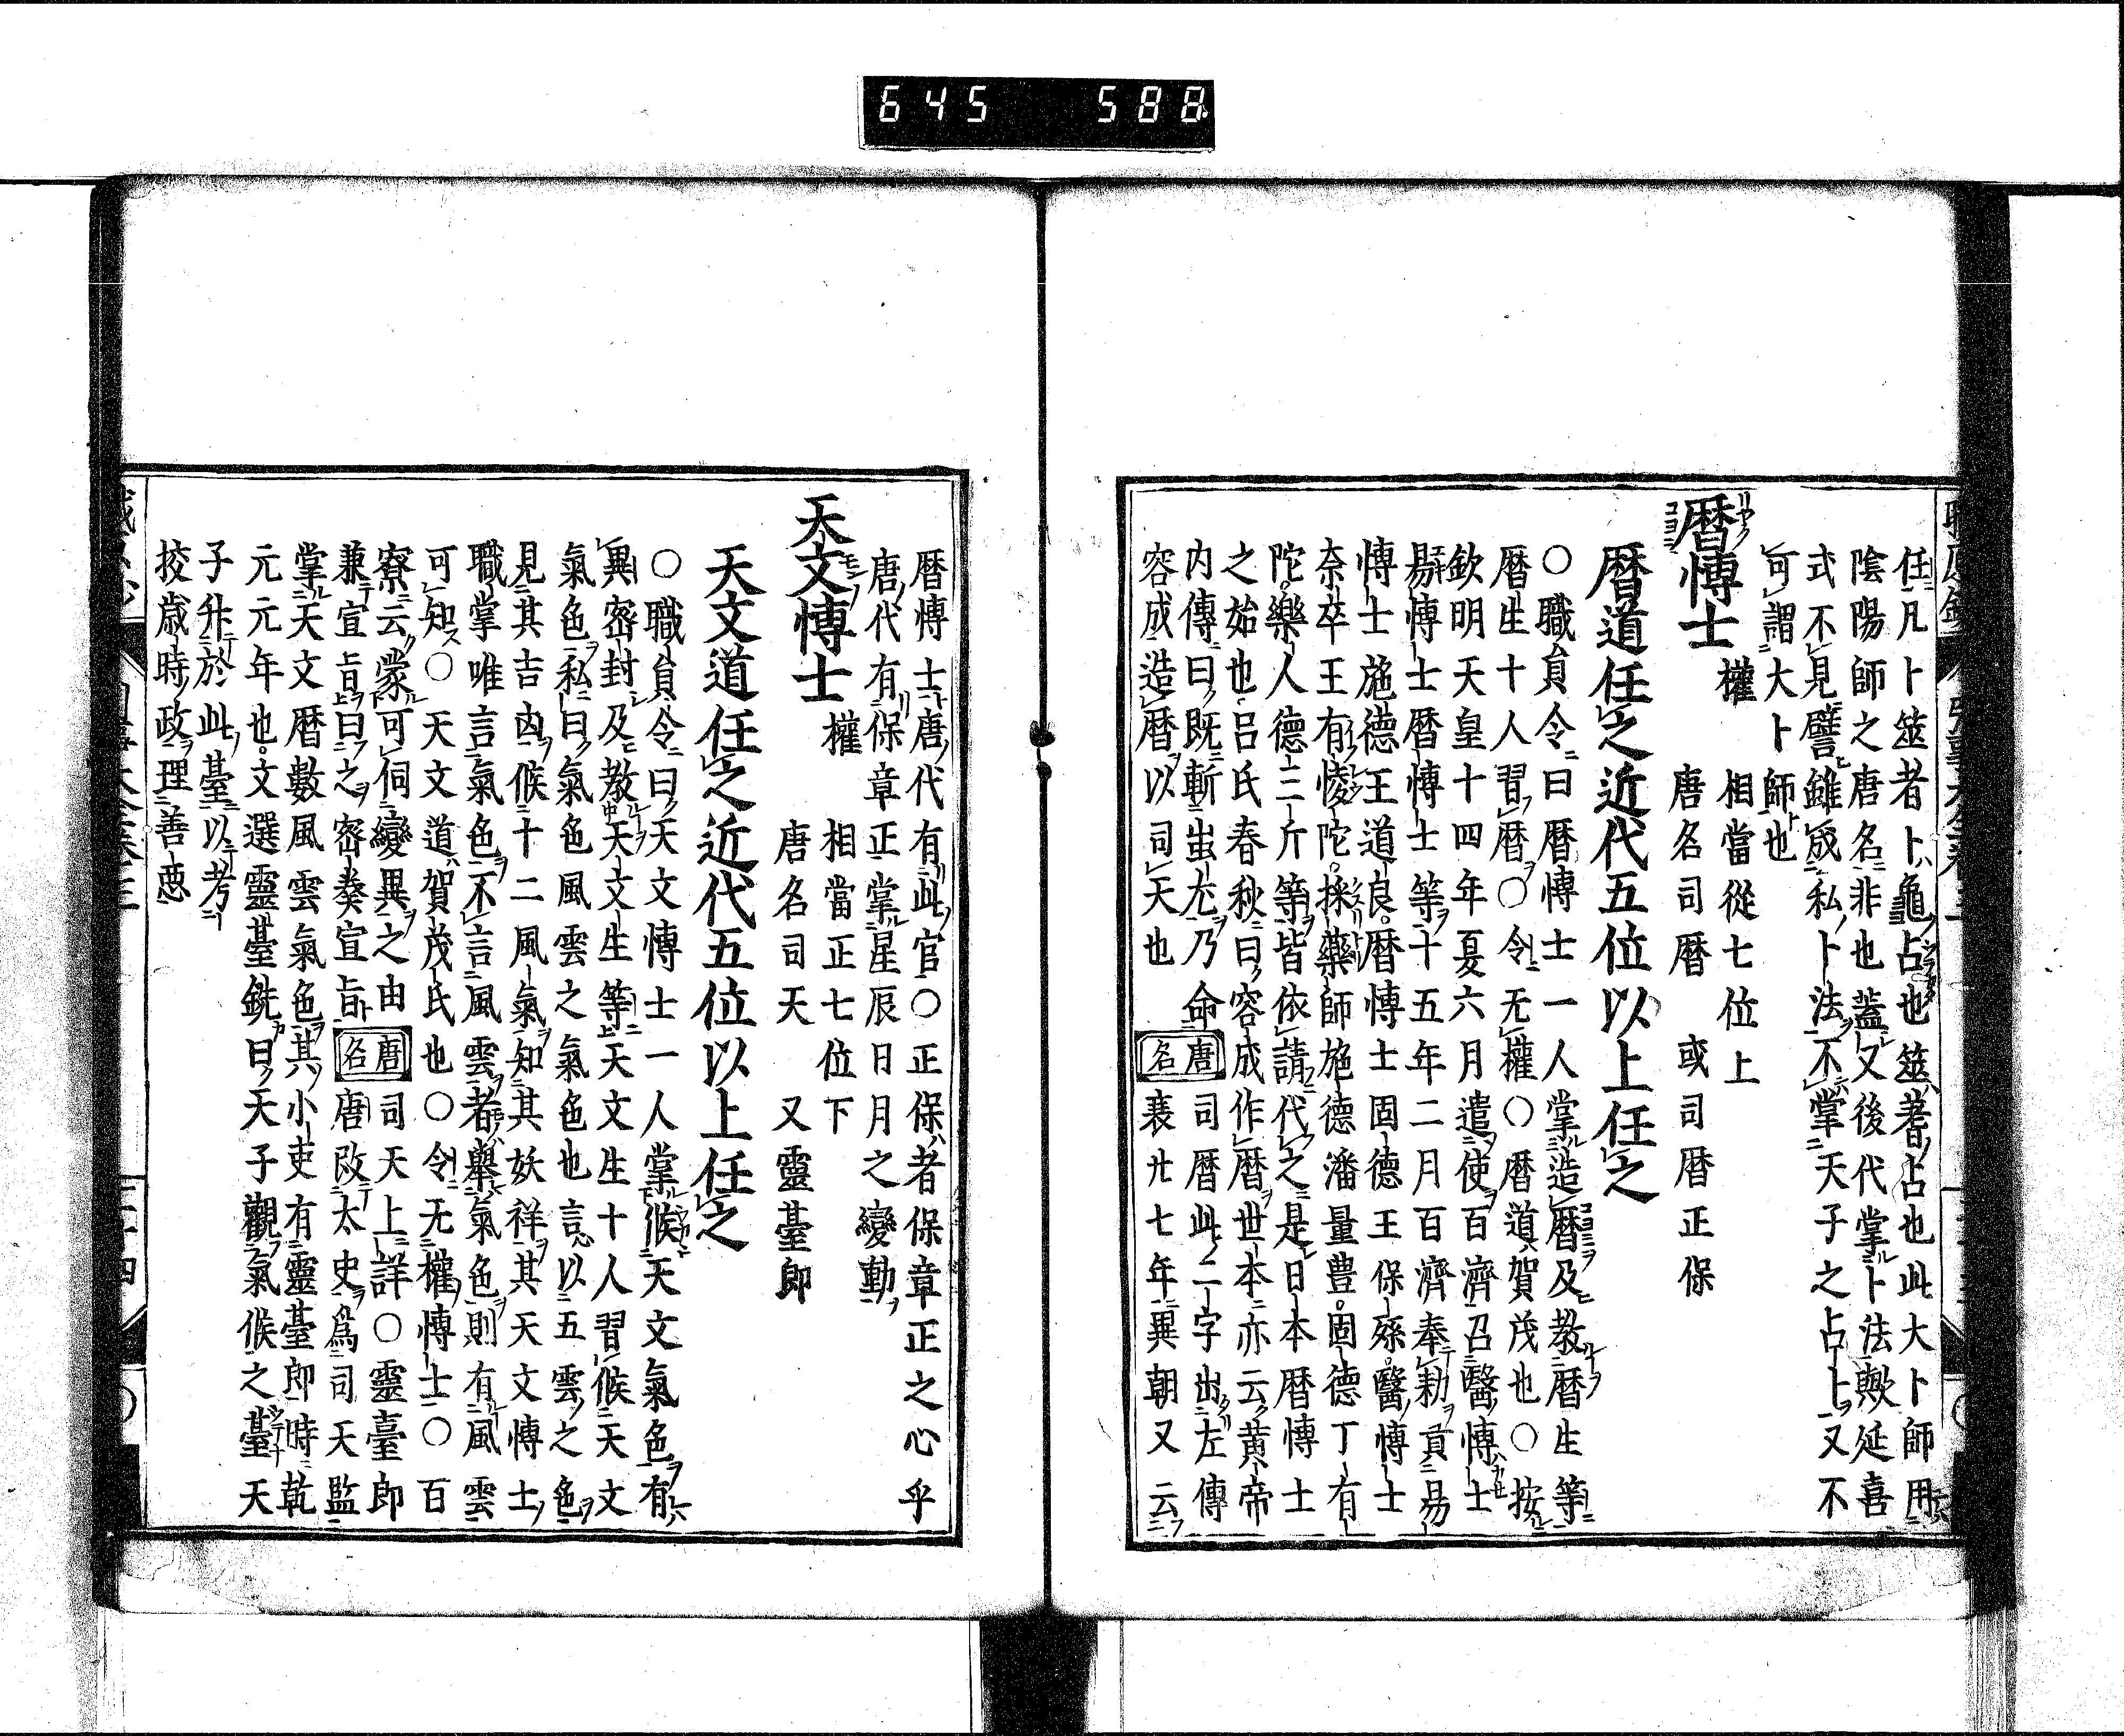 645 588
任凡卜筮者卜龜占也筮蓍占也此大卜師用
陰陽師之唐名非也蓋又後代掌卜法歟延喜
式不見譬雖成私卜法不掌天子之占上又不
可謂大卜師也
暦博士 權 相當從七位上
唐名司暦 或司暦正保
暦道任之近代五位以上任之
〇職員令曰暦博士一人掌造暦及教暦生等
暦生十人習暦〇令无權〇暦道賀茂也〇按
欽明天皇十四年夏六月遣使百濟召醫博士
易博士暦博士等十五年二月百濟奉勅貢易
博士施德王道良暦博士固德王保孫醫博士
奈卒王有㥄陀採藥師施德潘量豊固德丁有
陀樂人德三斤等皆依請代之是日本暦博士
之始也呂氏春秋曰容成作暦世本亦云黄帝
内傳曰既斬蚩尤乃命
容成造暦以司天也
唐名 司暦此二字出左傳
襄廿七年異朝又云
暦博士唐代有此官〇正保者保章正之心乎
唐代有保章正掌星辰日月之變動
天文博士 權 相當正七位下
唐名司天 又靈臺郎
天文道任之近代五位以上任之
〇職員令曰天文博士一人掌候天文氣色有
異密封及教天文生等天文生十人習候天文
氣色私曰氣色風雲之氣色也言以五雲之色
見其吉凶候十二風氣知其妖祥其天文博士
職掌唯言氣色不言風雲者擧氣色則有風雲
可知〇天文道賀茂氏也〇令无權博士〇百
寮云蒙可伺變異之由
兼宣旨曰之密奏宣旨
唐名 司天上詳〇靈臺郎
唐改太史爲司天監
掌天文暦數風雲氣色其小吏有靈臺郎時乾
元元年也文選靈臺銑曰天子觀氣候之臺天
子升於此臺以考
挍歳時政理善惡